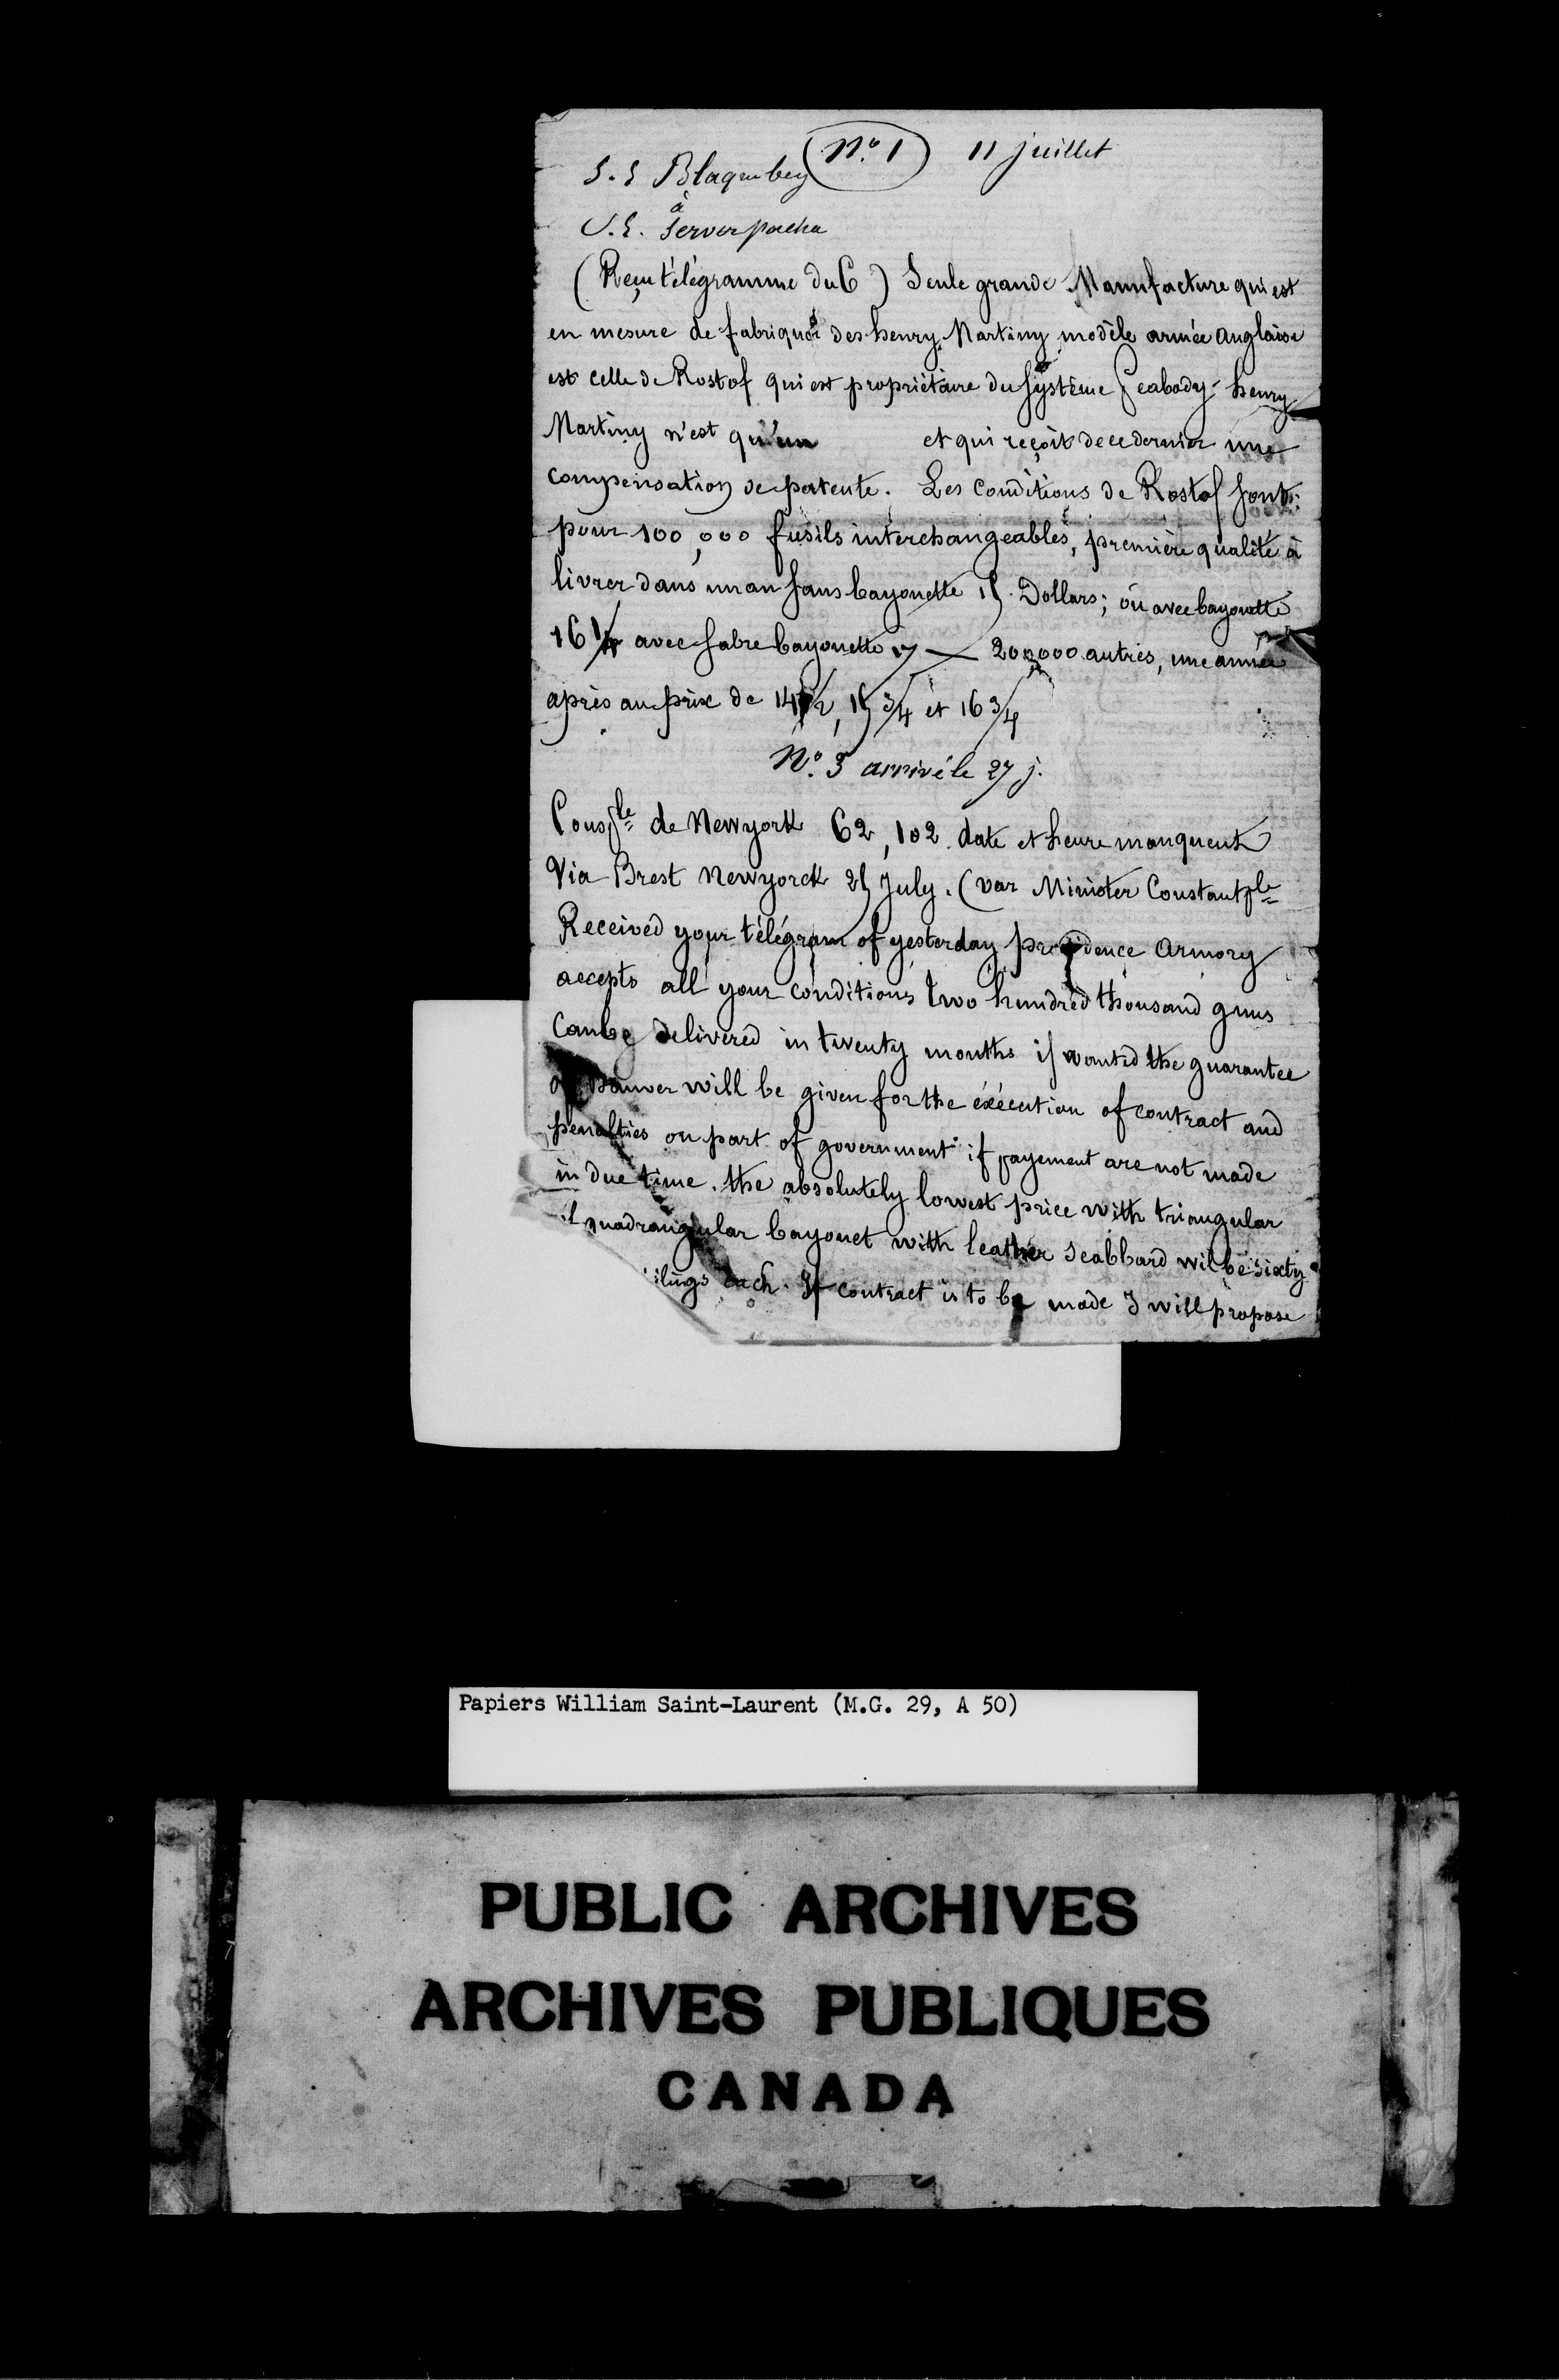 N.o 1 11 juillet
S. E Blaque bey
à
S. E. Server pacha
(Reçu télégramme du 6) Seule grande Manufacture qui est
en mesure de fabriquer des henry Martiny modèle armée anglaise
est celle de Rostof qui est propriétaire du système Peabody - henry
Martiny n'est qu'un et qui reçoit de ce dernier une
compensation de patente. Les conditions de Rostof sont:
pour 100,000 fusils interchangeables, première qualité à
livrer dans un an sans bayonette 15 Dollars; ou avec bayonette
16 1/4 avec sabre bayonette 17 — 200,000 autres, une année
après au prix de 14 1/2, 15 3/4 et 16 3/4
N.o 3 arrivé le 27 j.
Consple de Newyork 62, 102 date et heure manquent
Via Brest Newyorck 25 July. (var Minister Constantple
Received your télégram of yesterday providence armory
accepts all your conditions two hundred thousand guns
can be delivered in twenty months if wanted the guarantee
will be given for the éxécution of contract and
penalties on part of government if payement are not made
in due time. the absolutely lowest price with triangular
quadrangular bayonet with leather scabbard wil be sixty
each. If contract is to be made I will propose
Papiers William Saint-Laurent (M.G. 29, A 50)
PUBLIC ARCHIVES
ARCHIVES PUBLIQUES
CANADA